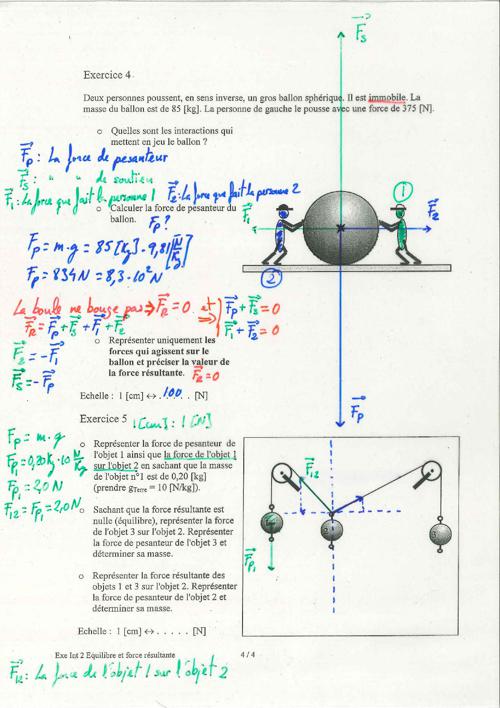 F⃗s
Exercice 4
Deux personnes poussent, en sens inverse, un gros ballon sphérique. Il est immobile. La
masse du ballon est de 85 [kg]. La personne de gauche le pousse avec une force de 375 [N].
o Quelles sont les interactions qui
mettent en jeu le ballon ?
F⃗p : La force de pesanteur
F⃗s : " " de soutien
F⃗1 : La force que fait la personne 1 F⃗2 : La force que fait la personne 2
o Calculer la force de pesanteur du
ballon. Fp ?
Fp = m·g = 85 [kg] · 9,81 [N/kg]
Fp = 834 N = 8,3·10² N
La boule ne bouge pas ⇒ F⃗R = 0 et
F⃗R = F⃗p + F⃗s + F⃗1 + F⃗2
⇒ F⃗p + F⃗s = 0
F⃗1 + F⃗2 = 0
F⃗2 = -F⃗1
F⃗s = -F⃗p
F⃗1
1
F⃗2
2
F⃗p
o Représenter uniquement les
forces qui agissent sur le
ballon et préciser la valeur de
la force résultante. F⃗R = 0
Echelle : 1 [cm] ↔ .100. . [N]
Exercice 5 1[cm] : 1[N]
Fp = m·g
Fp1 = 0,20 kg · 10 N/kg
Fp1 = 2,0 N
F12 = Fp1 = 2,0 N
o Représenter la force de pesanteur de
l'objet 1 ainsi que la force de l'objet 1
sur l'objet 2 en sachant que la masse
de l'objet n°1 est de 0,20 [kg]
(prendre gTerre = 10 [N/kg]).
o Sachant que la force résultante est
nulle (équilibre), représenter la force
de l'objet 3 sur l'objet 2. Représenter
la force de pesanteur de l'objet 3 et
déterminer sa masse.
o Représenter la force résultante des
objets 1 et 3 sur l'objet 2. Représenter
la force de pesanteur de l'objet 2 et
déterminer sa masse.
Echelle : 1 [cm] ↔ . . . . . [N]
F⃗12
F⃗p1
Exe Int 2 Equilibre et force résultante 4 / 4
F⃗12 : La force de l'objet 1 sur l'objet 2